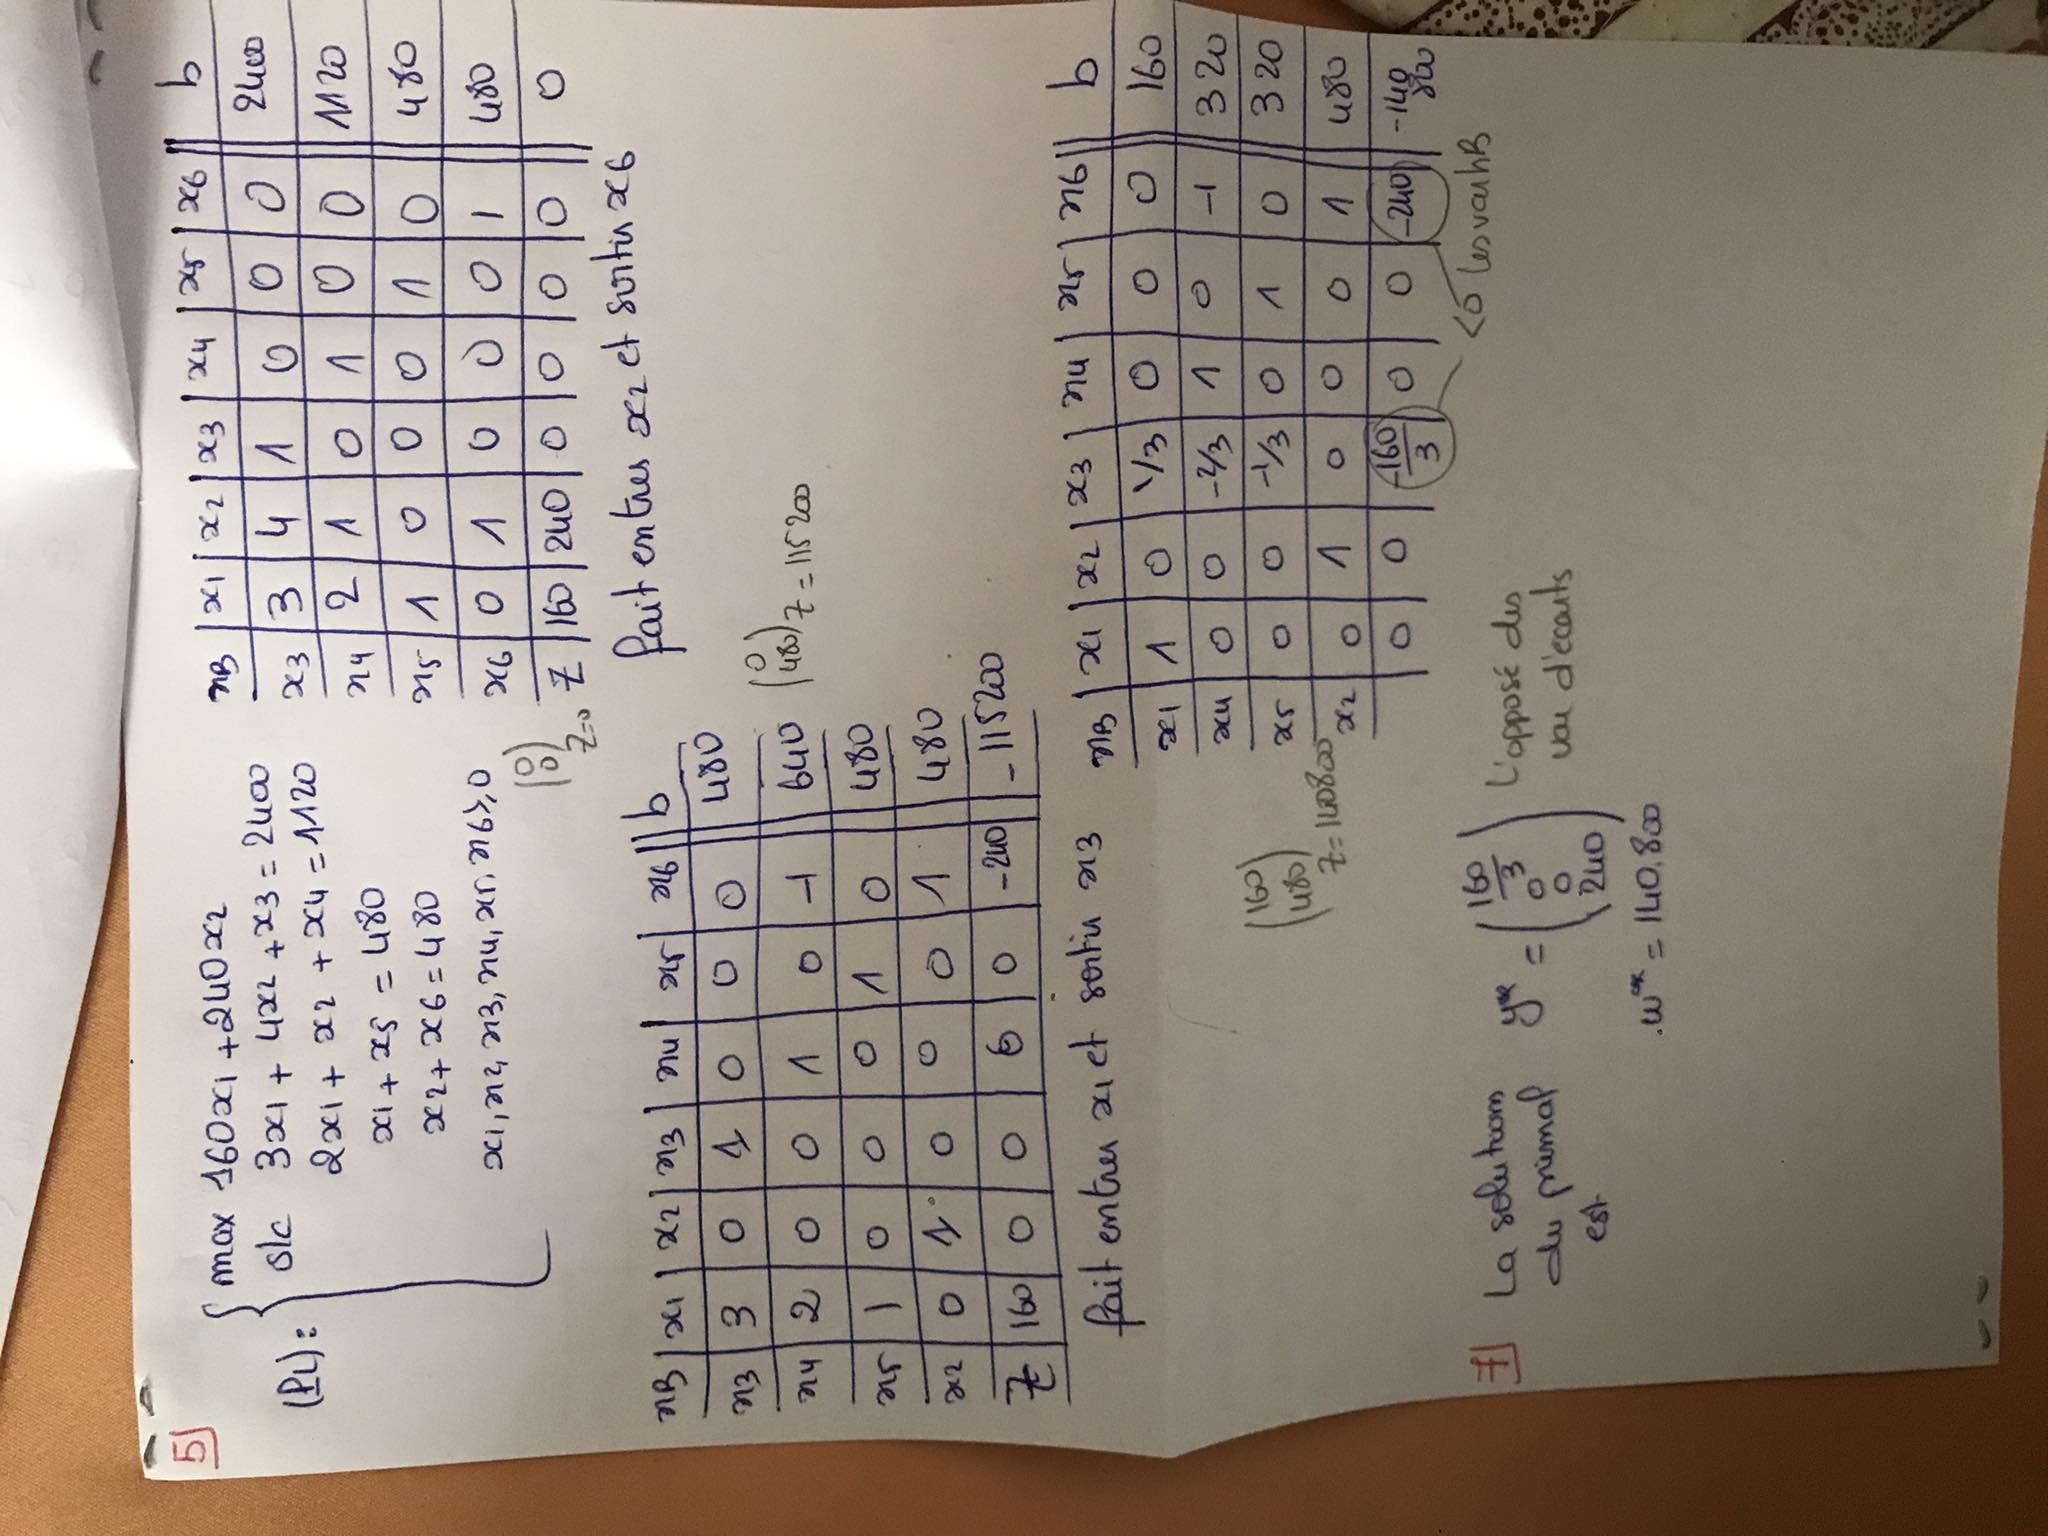 5]
(PL): max 160x1 + 240x2
s/c 3x1 + 4x2 + x3 = 2400
2x1 + x2 + x4 = 1120
x1 + x5 = 480
x2 + x6 = 480
x1, x2, x3, x4, x5, x6 ≥ 0
xB | x1 | x2 | x3 | x4 | x5 | x6 || b
x3 | 3 | 4 | 1 | 0 | 0 | 0 || 2400
x4 | 2 | 1 | 0 | 1 | 0 | 0 || 1120
x5 | 1 | 0 | 0 | 0 | 1 | 0 || 480
x6 | 0 | 1 | 0 | 0 | 0 | 1 || 480
Z | 160 | 240 | 0 | 0 | 0 | 0 || 0
(0 0) Z=0
fait entrer x2 et sortir x6
xB | x1 | x2 | x3 | x4 | x5 | x6 || b
x3 | 3 | 0 | 1 | 0 | 0 | 0 || 480
x4 | 2 | 0 | 0 | 1 | 0 | -1 || 640
x5 | 1 | 0 | 0 | 0 | 1 | 0 || 480
x2 | 0 | 1 | 0 | 0 | 0 | 1 || 480
Z | 160 | 0 | 0 | 0 | 0 | -240 || -115200
(0 480) Z = 115200
fait entrer x1 et sortir x3
xB | x1 | x2 | x3 | x4 | x5 | x6 || b
x1 | 1 | 0 | 1/3 | 0 | 0 | 0 || 160
x4 | 0 | 0 | -2/3 | 1 | 0 | -1 || 320
x5 | 0 | 0 | -1/3 | 0 | 1 | 0 || 320
x2 | 0 | 1 | 0 | 0 | 0 | 1 || 480
0 | 0 | -160/3 | 0 | 0 | -240 || -140 800
(160 480) Z = 140800
<0 les var hB
7] La solutions
du primal
est
y* = (160/3 0 0 240)
L'opposé des
var d'écarts
w* = 140.800